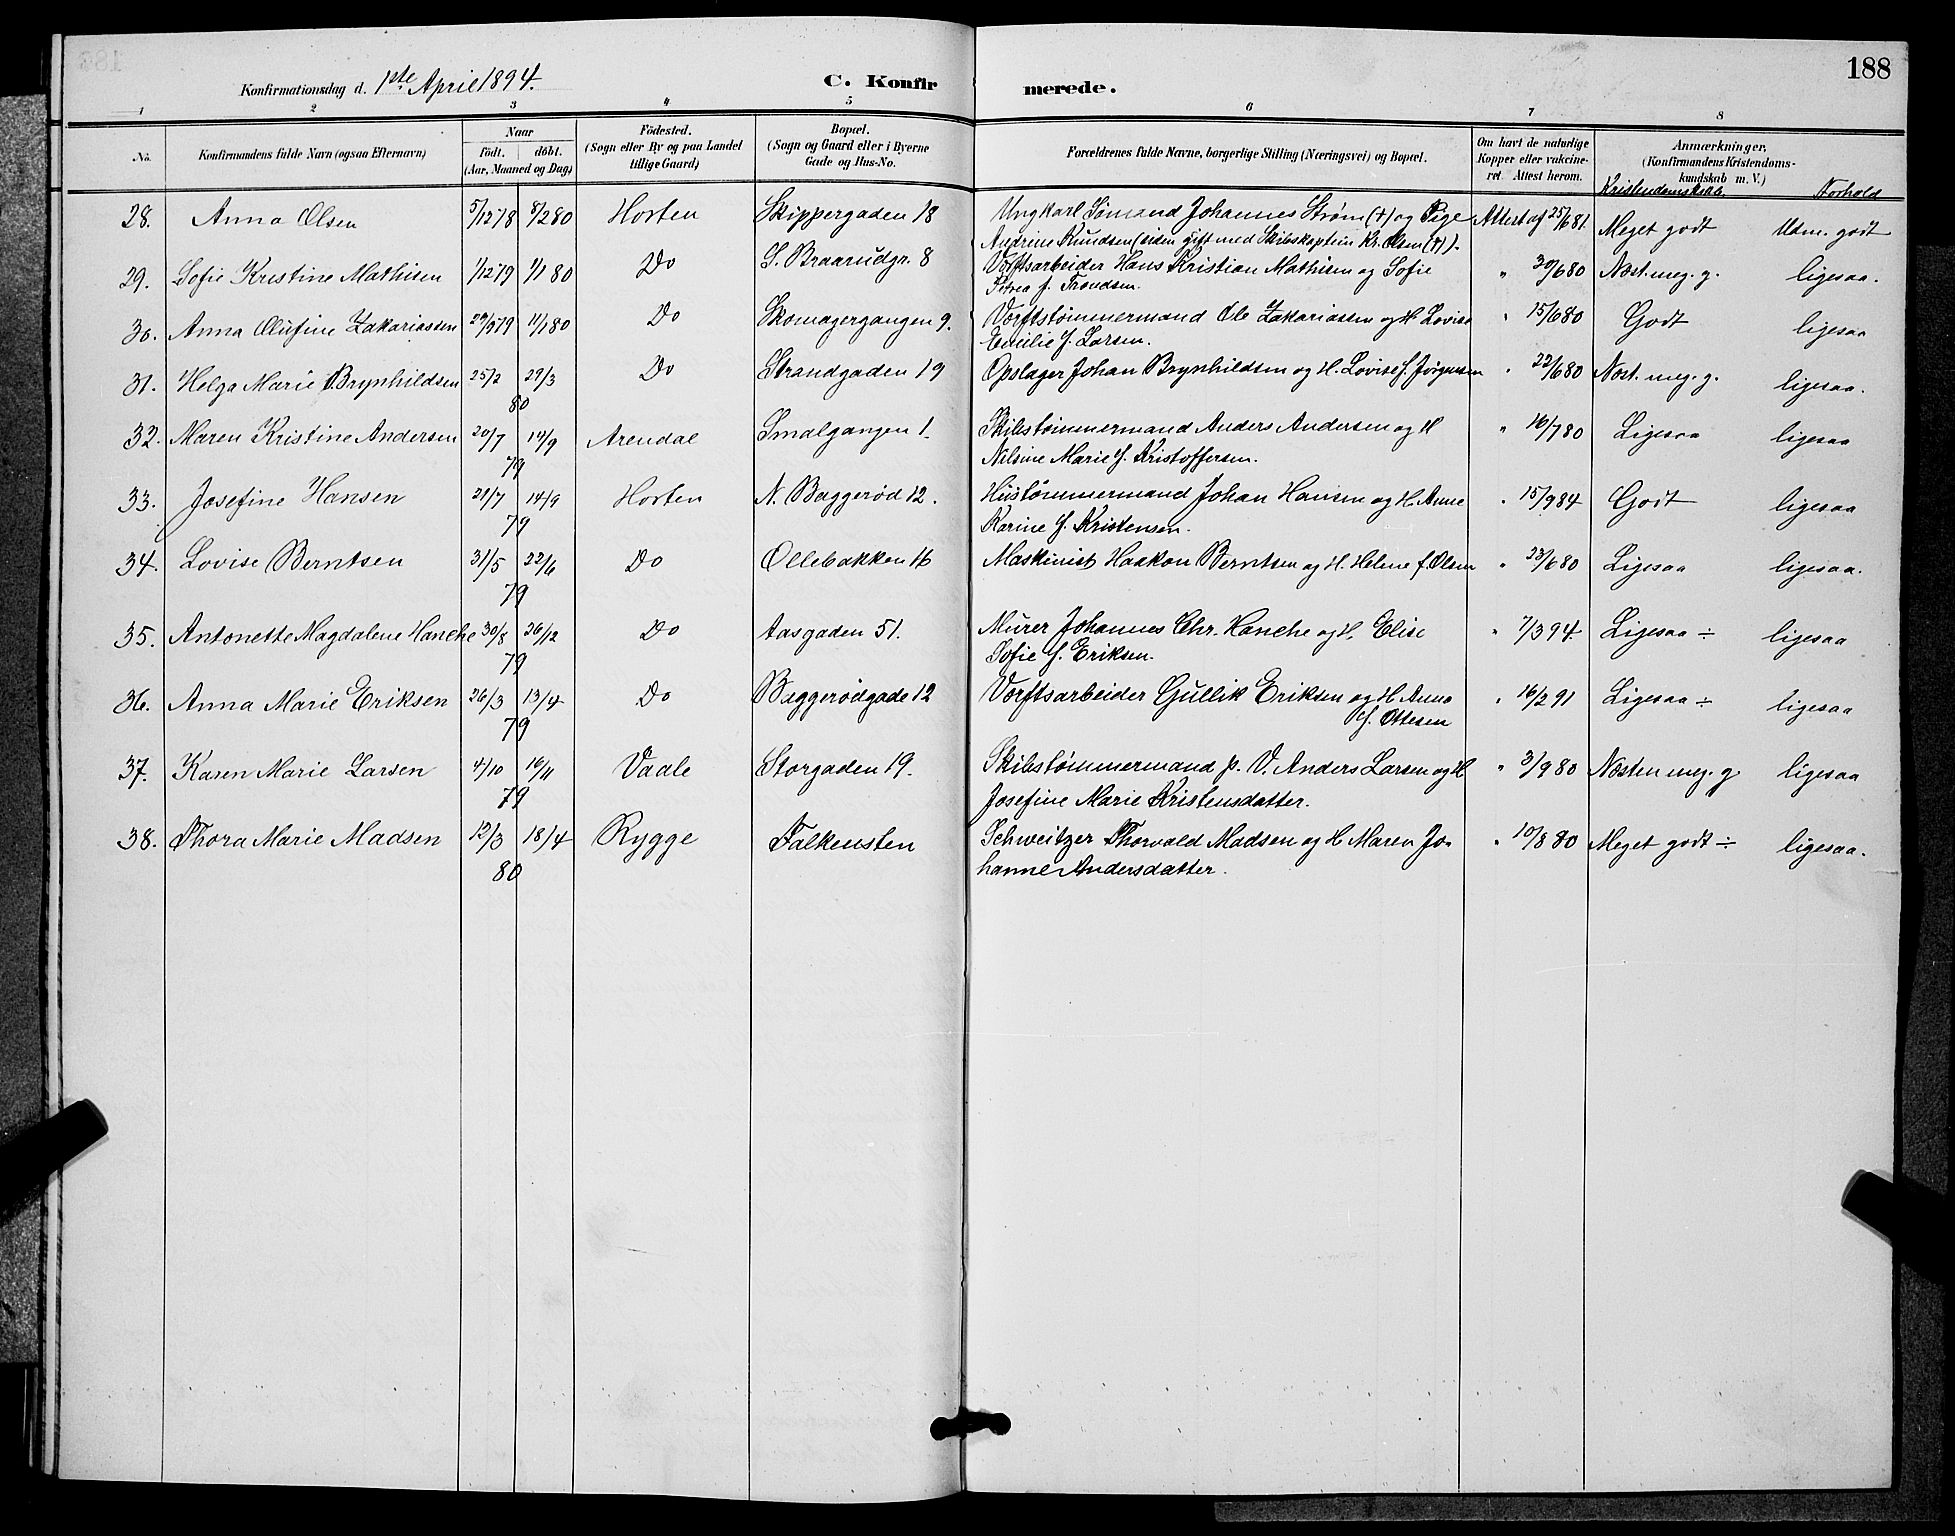 188
Konfirmationsdag d. 1ste April 1894.
C. Konfirmerede.
1 2 3 4 5 6 7 8
No. Konfirmandens fulde Navn (ogsaa Efternavn) Naar Födt. döbt. (Aar, Maaned og Dag) Födested. (Sogn eller By og paa Landet tillige Gaard) Bopæl. (Sogn og Gaard eller i Byerne Gade og Hus-No. Forældrenes fulde Navne, borgerlige Stilling (Næringsvei) og Bopæl. Om havt de naturlige Kopper eller vakcineret. Attest herom. Anmærkninger. (Konfirmandens Kristendomskundskab m. V.)
Kristendomskab. Forhold
28. Anna Olsen 5/12 78 8/2 80 Horten Skippergaden 18 Ungkarl Sømand Johannes Strøm (†) og Pige Attest af 25/6 81. Meget godt Udm. godt
Andrine Knudsen (siden gift med Skibskaptein Kr. Olsen (†)).
29. Sofie Kristine Mathisen 1/12 79 1/1 80 Do S. Braarudgr. 8 Værftsarbeider Hans Kristian Mathisen og Sofie " 30/6 80 Næst. meg. g. ligesaa.
Petrea f. Trondsen.
30. Anna Olufine Zakariassen 29/9 79 11/1 80 Do Skomagergangen 9. Værftstømmermand Ole Zakariassen og H. Lovise " 15/6 80 Godt ligesaa
Emilie f. Larsen.
31. Helga Marie Brynhildsen 25/2 29/3 Do Strandgaden 19 Opslager Johan Brynhildsen og H. Lovise f. Jørgensen " 22/6 80 Næst. meg. g. ligesaa.
80
32. Maren Kristine Andersen 20/7 14/9 Arendal Smalgangen 1. Skibstømmermand Anders Andersen og H " 16/7 80 Ligesaa ligesaa
79 Nilsine Marie f. Kristoffersen.
33. Josefine Hansen 21/7 14/9 Horten N. Baggerød 12. Hustømmermand Johan Hansen og H. Anne " 15/9 84 Godt ligesaa
79 Karine f. Kristensen.
34. Lovise Berntsen 31/5 22/6 Do Ollebakken 16 Maskinist Haakon Berntsen og H. Helene f. Olsen " 23/6 80 Ligesaa ligesaa.
79
35. Antonette Magdalene Hanche 30/8 26/12 Do Aasgaden 51. Murer Johannes Chr. Hanche og H. Elise " 7/3 94. Ligesaa ÷ ligesaa
79 Sofie f. Eriksen.
36. Anna Marie Eriksen 26/3 13/4 Do Baggerødgade 12 Værftsarbeider Gullik Eriksen og H Anna " 16/2 91 Ligesaa ÷ ligesaa
79 f. Ottesen
37. Karen Marie Larsen 4/10 16/11 Vaale Storgaden 19. Skibstømmermand p. V. Anders Larsen og H " 3/9 80 Næsten meg. g ligesaa
79 Josefine Marie Kristensdatter.
38. Thora Marie Madsen 12/3 18/4 Rygge Falkensten Schweitzer Thorvald Madsen og H Maren Jo- " 10/8 80 Meget godt ÷ ligesaa.
80 hanne Andersdatter.